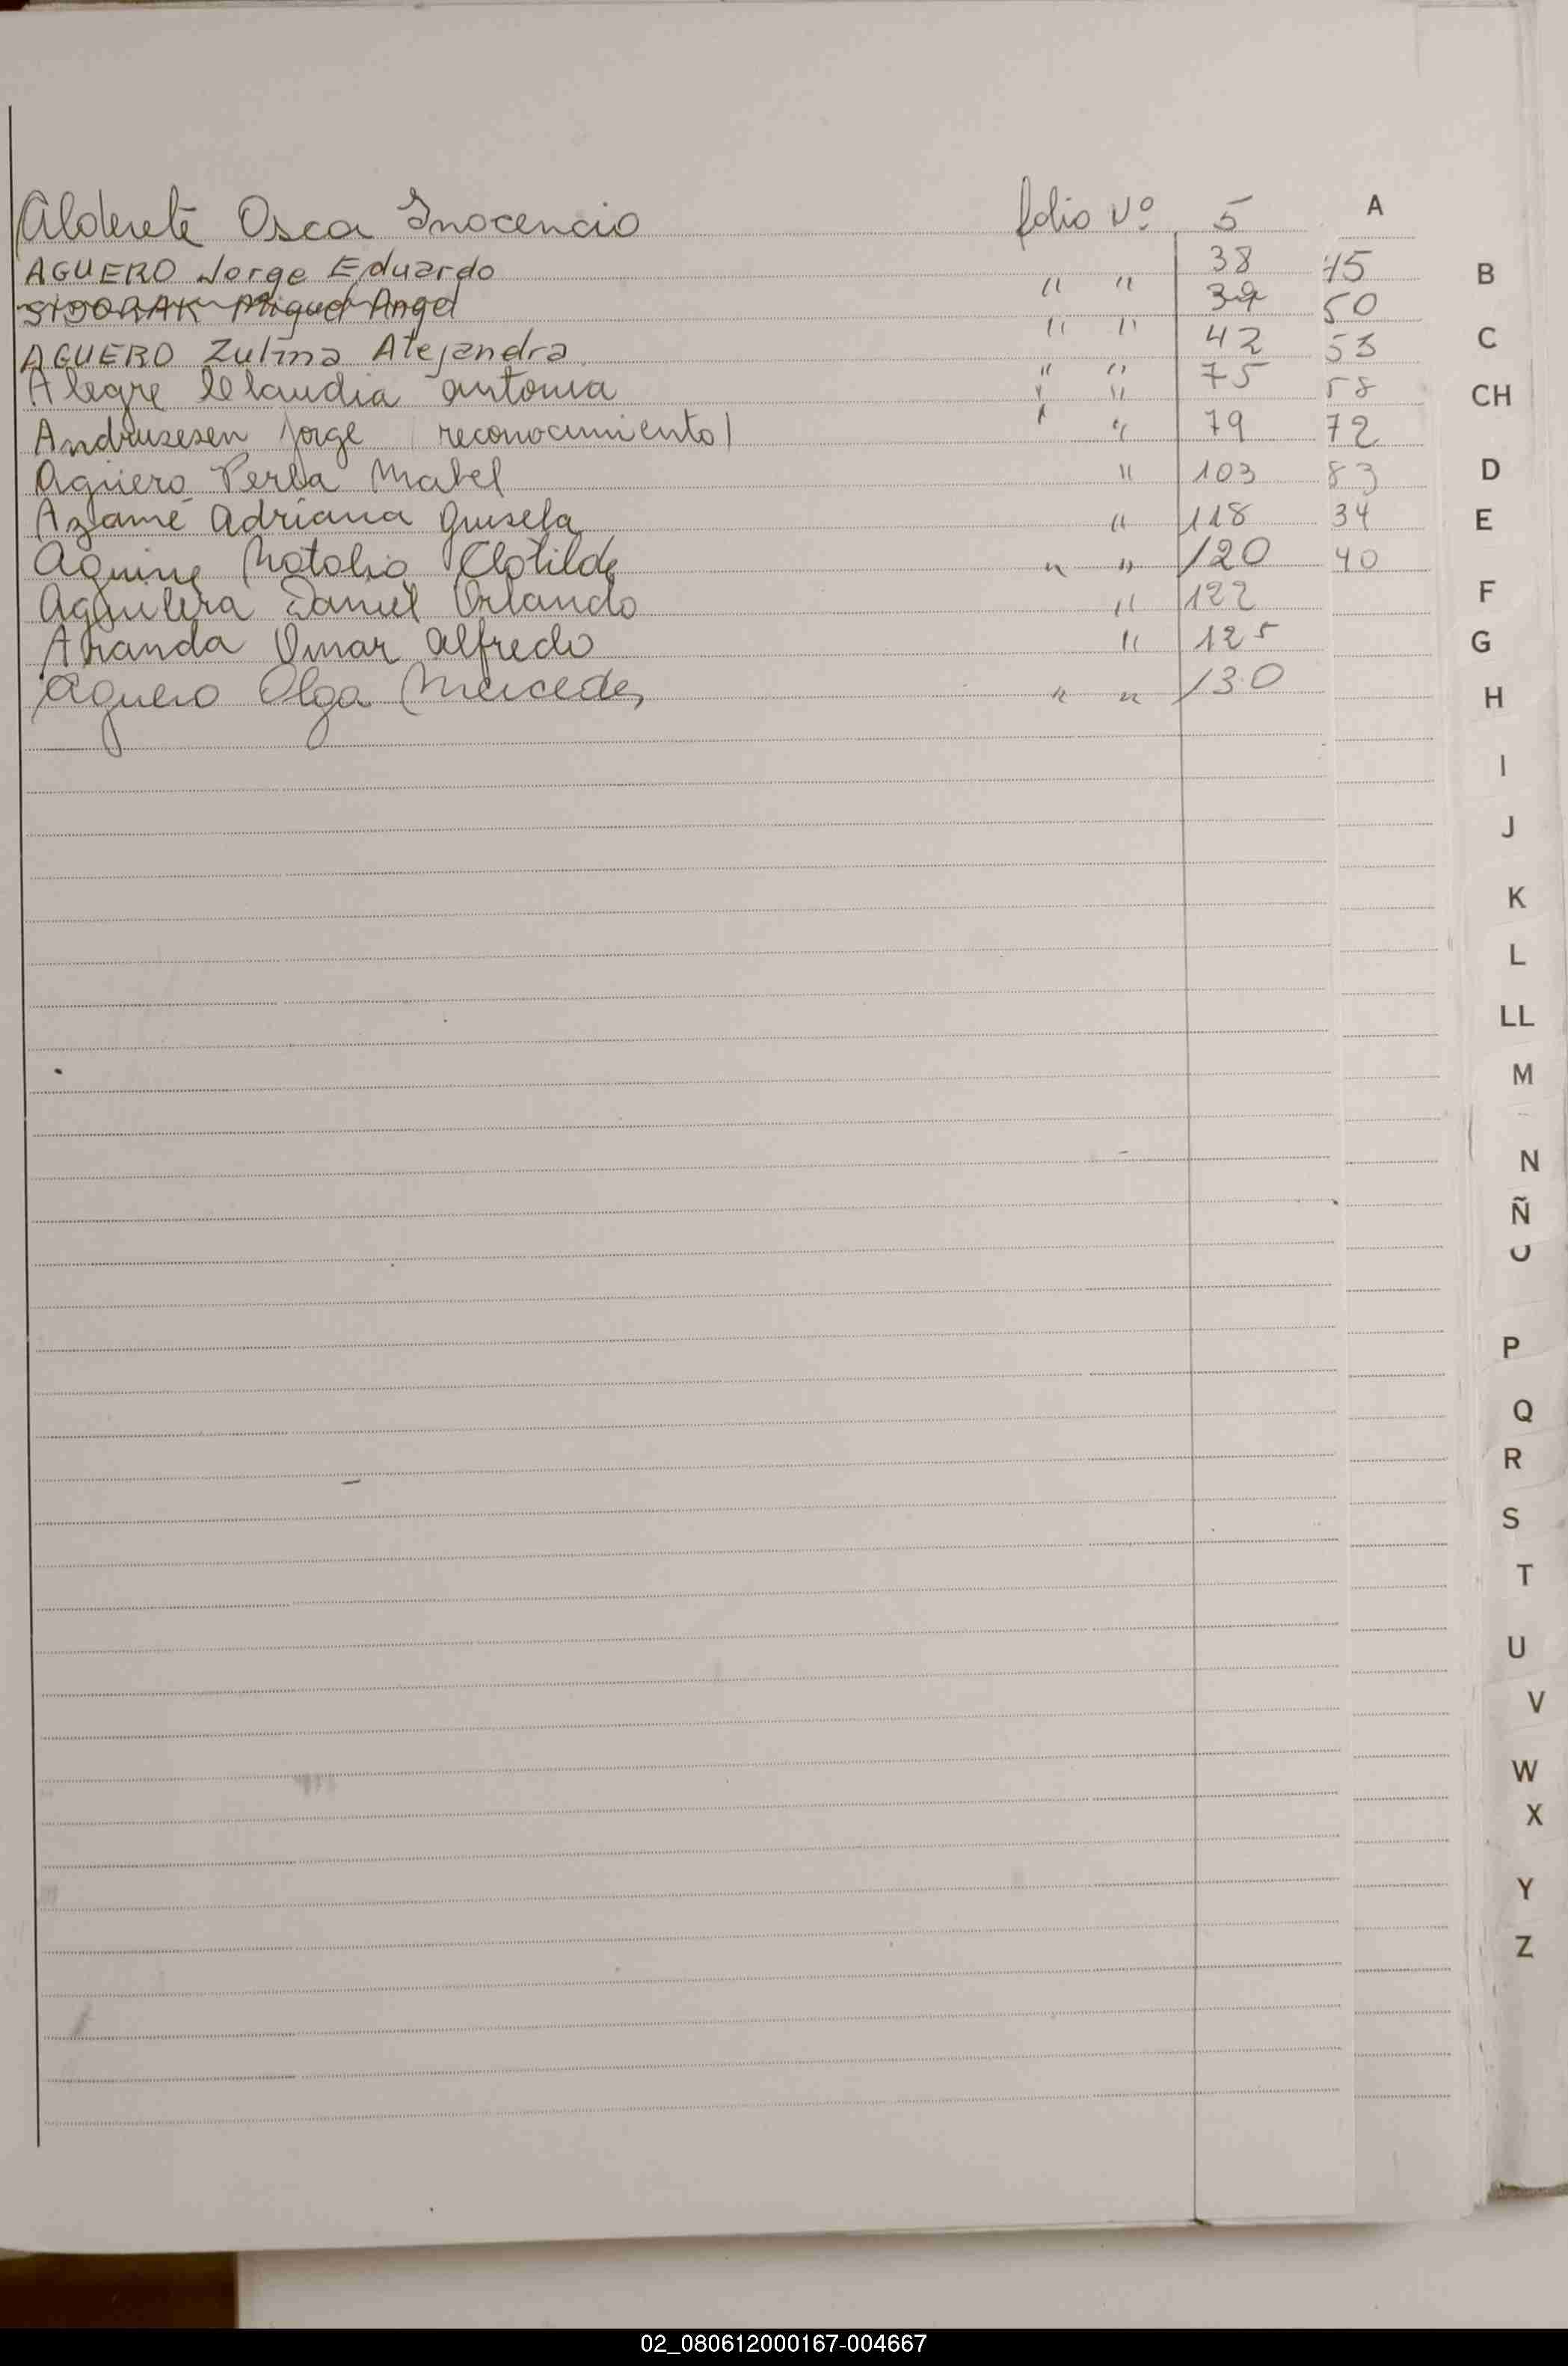 Alderete Osca Inocencio folio Nº 5 A
AGUERO Jorge Eduardo " " 38 45 B
SIDORAK Miguel Angel " " 39 50
AGUERO Zulma Alejandra " " 42 53 C
Alegre Claudia Antonia " " 75 58 CH
Jorge (reconocimiento) " " 79 72
Agüero Perla Mabel " 103 83 D
Azamé Adriana Guisela " 118 34 E
Aguirre Natalia Clotilde " " 120 40
Aguilera Daniel Orlando " 122 F
Aranda Omar Alfredo " 125 G
Aguero Olga Mercedes " " 130 H
I
J
K
L
LL
M
N
Ñ
P
Q
R
S
T
U
V
W
X
Y
Z
02_080612000167-004667